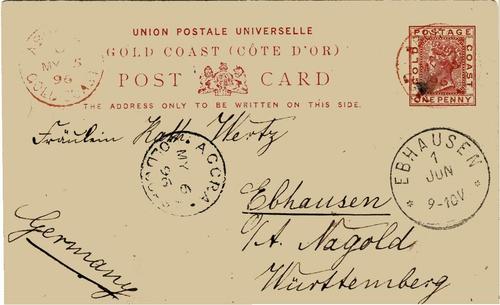 UNION POSTALE UNIVERSELLE
GOLD COAST (CÔTE D'OR)
POST CARD
THE ADDRESS ONLY TO BE WRITTEN ON THIS SIDE.
GOLD COAST
MY 5
96
POSTAGE
GOLD COAST
ONE PENNY
Fräulein Kath. Wertz
ACCRA
MY 6
96
EBHAUSEN
1
JUN
9-10V
Ebhausen
O/A. Nagold
Württemberg
Germany